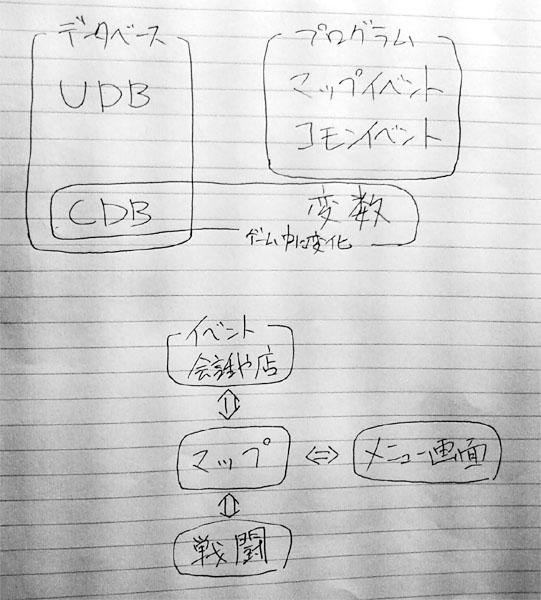 データベース
UDB
CDB
プログラム
マップイベント
コモンイベント
変数
ゲーム中に変化
イベント
会話や店
マップ
メニュー画面
戦闘